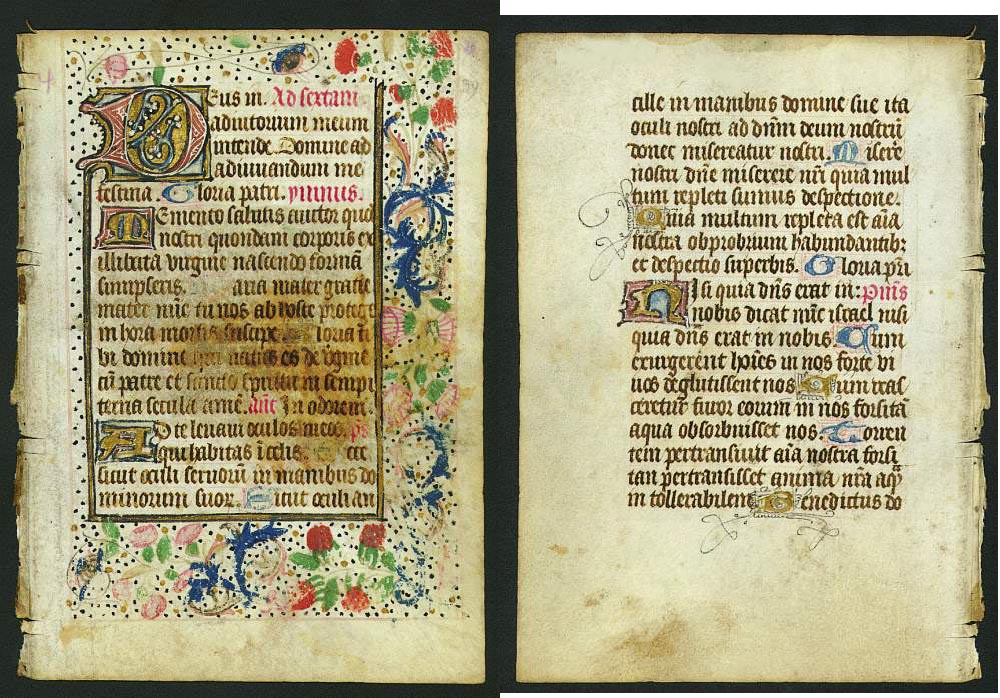 Deus in. Ad sextam
adiutorium meum
intende. Domine ad
adiuuandum me
festina. Gloria patri. ymnus.
Memento salutis auctor quod
nostri quondam corporis ex
illibata virgine nascendo formā
sumpseris. Maria mater gratie
mater mīe tu nos ab hoste protege
in hora mortis suscipe. Gloria ti
bi domine qui natus es de v̄gine
cū patre et sancto spiritu in sempi
terna secula amē. ant̄ In odorem.
Ad te leuaui oculos meos. ps̄
qui habitas ī celis. Ecce
sicut oculi seruorū in manibus do
minorum suor. Sicut oculi an
cille in manibus domine sue ita
oculi nostri ad dn̄m deum nostrū
donec misereatur nostri. Misere
nostri dn̄e miserere nr̄i quia mul
tum repleti sumus despectione.
Quia multum repleta est aīa
nostra obprobrium habundantib:
et despectio superbis. Gloria pr̄i
Nisi quia dn̄s erat in: psm̄s
nobis dicat nūc israel nisi
quia dn̄s erat in nobis Cum
exurgerent hoīes in nos forte vi
uos deglutissent nos Cum iras
ceretur furor eorum in nos forsitā
aqua obsorbuisset nos. Torren
tem pertransiuit aīa nostra forsi
tan pertransisset anima nr̄a aq̄
in tollerabilem Benedictus do